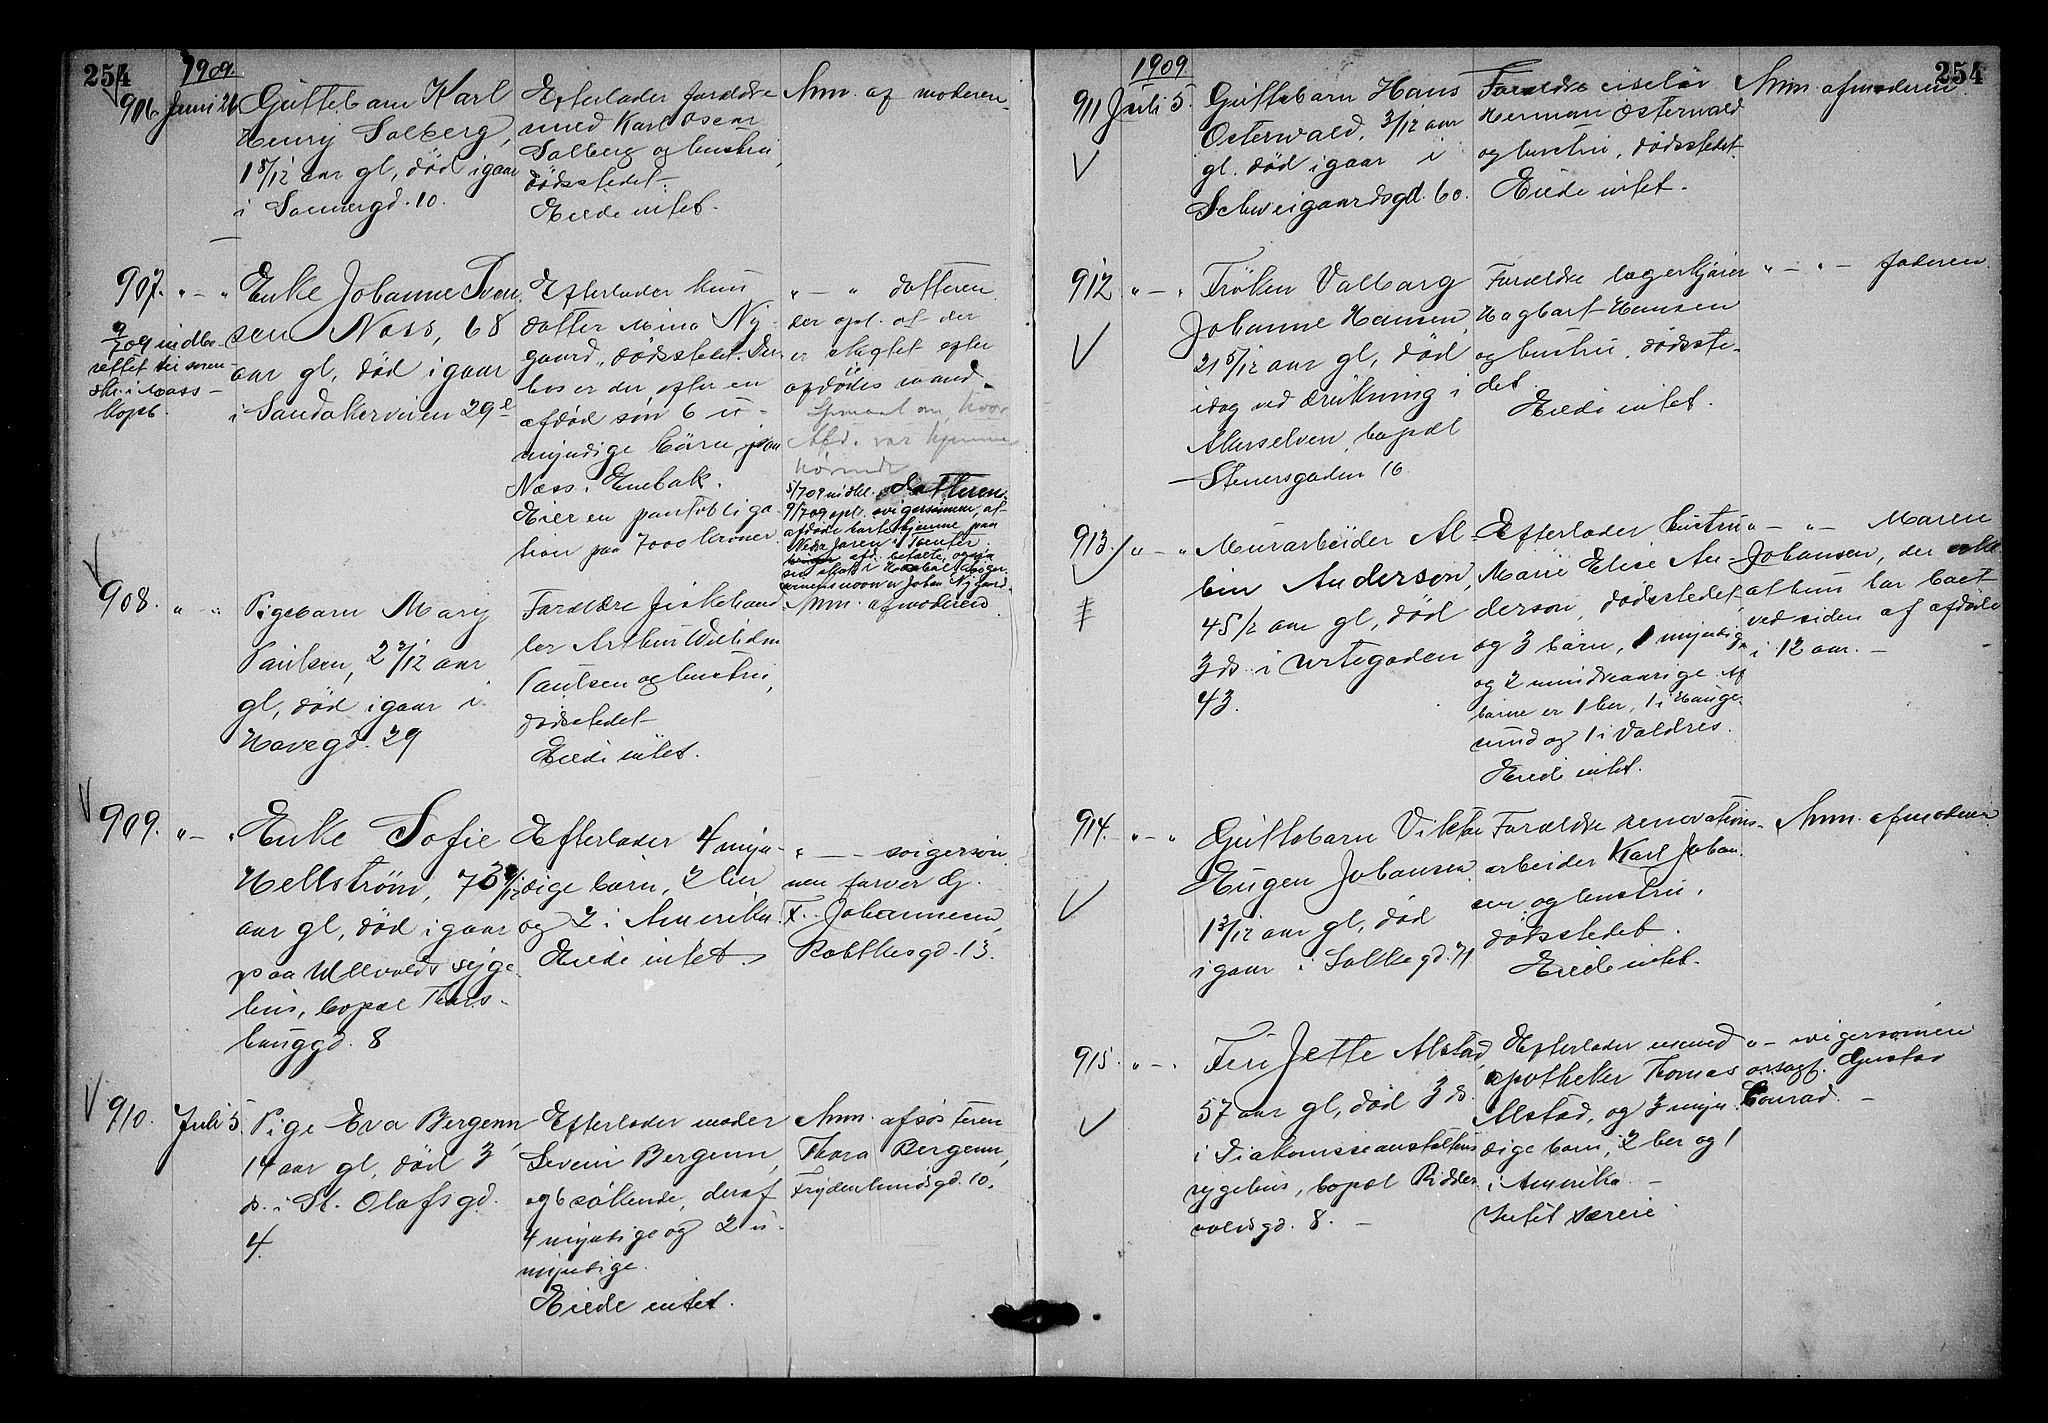 254
1909.
906. Juni 26
Guttebarn Karl
Henry Solberg,
1 8/12 aar gl, død igaar
i Sannergd. 10.
Efterlader forældre
Karl Oscar
Solberg og hustru,
dødsstedet.
Eiede intet.
Anm. af moderen.
907. " — "
9/7 09 indbe-
rettet til soren-
skr. i
Enke Johanne Iver-
sen Næss, 68
aar gl, død igaar
i Sandakerveien 29
Efterlader kun
datter Mina Ny-
gaard, dødsstedet. Des-
uden er der efter en
afdød søn 6 u-
myndige børn, paa
Næss i Enebak.
Eier en pantobliga-
tion paa 7000 kroner
" — " datteren
der opl. at der
er skiftet efter
afdødes mand.
Spørsmaal om hvor
Afd. var hjemme-
hørende
5/7 09 indk. datteren.
9/7 09 opl. svigersønnen, at
afdøde hørte hjemme paa
afd. betalte ogsaa
sin skat i
svigersønnens navn er Johan Nygaard.
908. " — "
Pigebarn Mary
Paulsen, 2 2/12 aar
gl, død igaar i
Havegd. 29
Forældre fiskehand-
ler Arthur Wilhelm
Paulsen og hustru,
dødsstedet
Eiede intet.
Anm. af moderen.
909. " — "
Enke Sofie
Hellstrøm, 73
aar gl, død igaar
paa Ullevolds syge-
hus, bopæl Thors-
hauggd. 8
Efterlader 4 myn-
dige børn, 2 her
og 2 i Amerika.
Eiede intet.
" — — svigersøn-
nen farver
F. Johannesen,
Rathkesgd. 13.
910. Juli 5.
Pige Eva Bergenn,
14 aar gl, død 3
ds. i St. Olafsgd.
4.
Efterlader moder
Severin Bergenn,
og 6 søskende, deraf
4 myndige og 2 u-
myndige.
Eiede intet.
Anm. af søsteren
Thora Bergenn,
Frydenlundsgd. 10.
254
1909
911 Juli 5.
Guttebarn Hans
Osterwald, 3/12 aar
gl. død igaar i
Schweigaardsgd. 60.
Forældre ciselør
Herman Osterwald
og hustru, dødsstedet.
Eiede intet.
Anm. af moderen.
912 " — "
Frøken Valborg
Johanne Hansen,
21 5/12 aar gl, død
idag ved drukning i
Akerselven, bopæl
Stenersgaden 16.
Forældre lagerkjører
Hagbart Hansen
og hustru, dødsste-
det.
Eiede intet.
" — " — faderen.
913. " — "
Murarbeider Al-
bin Anderson,
45 1/2 aar gl, død
3 ds. i Urtegaden
43.
Efterlader hustru
Marie Elise An-
derson, dødsstedet,
og 3 børn, 1 myndig
og 2 mindreaarige. Af
børne er 1 her, 1 i Hauge-
sund og 1 i Valdres.
Eiede intet.
" — " — Maren
Johansen, der
at hun har boet
ved siden af afdøde
i 12 aar. —
914. " — "
Guttebarn Viktor
Eugen Johansen
1 3/12 aar gl, død
igaar i Sofkegd. 71
Forældre renovations-
arbeider Karl Johan-
sen og hustru,
dødsstedet.
Eiede intet.
Anm. af moderen
915. " — "
Fru Jette Alstad,
57 aar gl, død 3 ds.
i Diakonisseanstaltens
sygehus, bopæl Ridder-
voldsgd. 8. —
Efterlader mand
apotheker Thomas
Alstad, og 3 myn-
dige børn, 2 her og 1
i Amerika. —
Intet særeie.
" — svigersønnen
orsagf. Gustav
Conrad. —